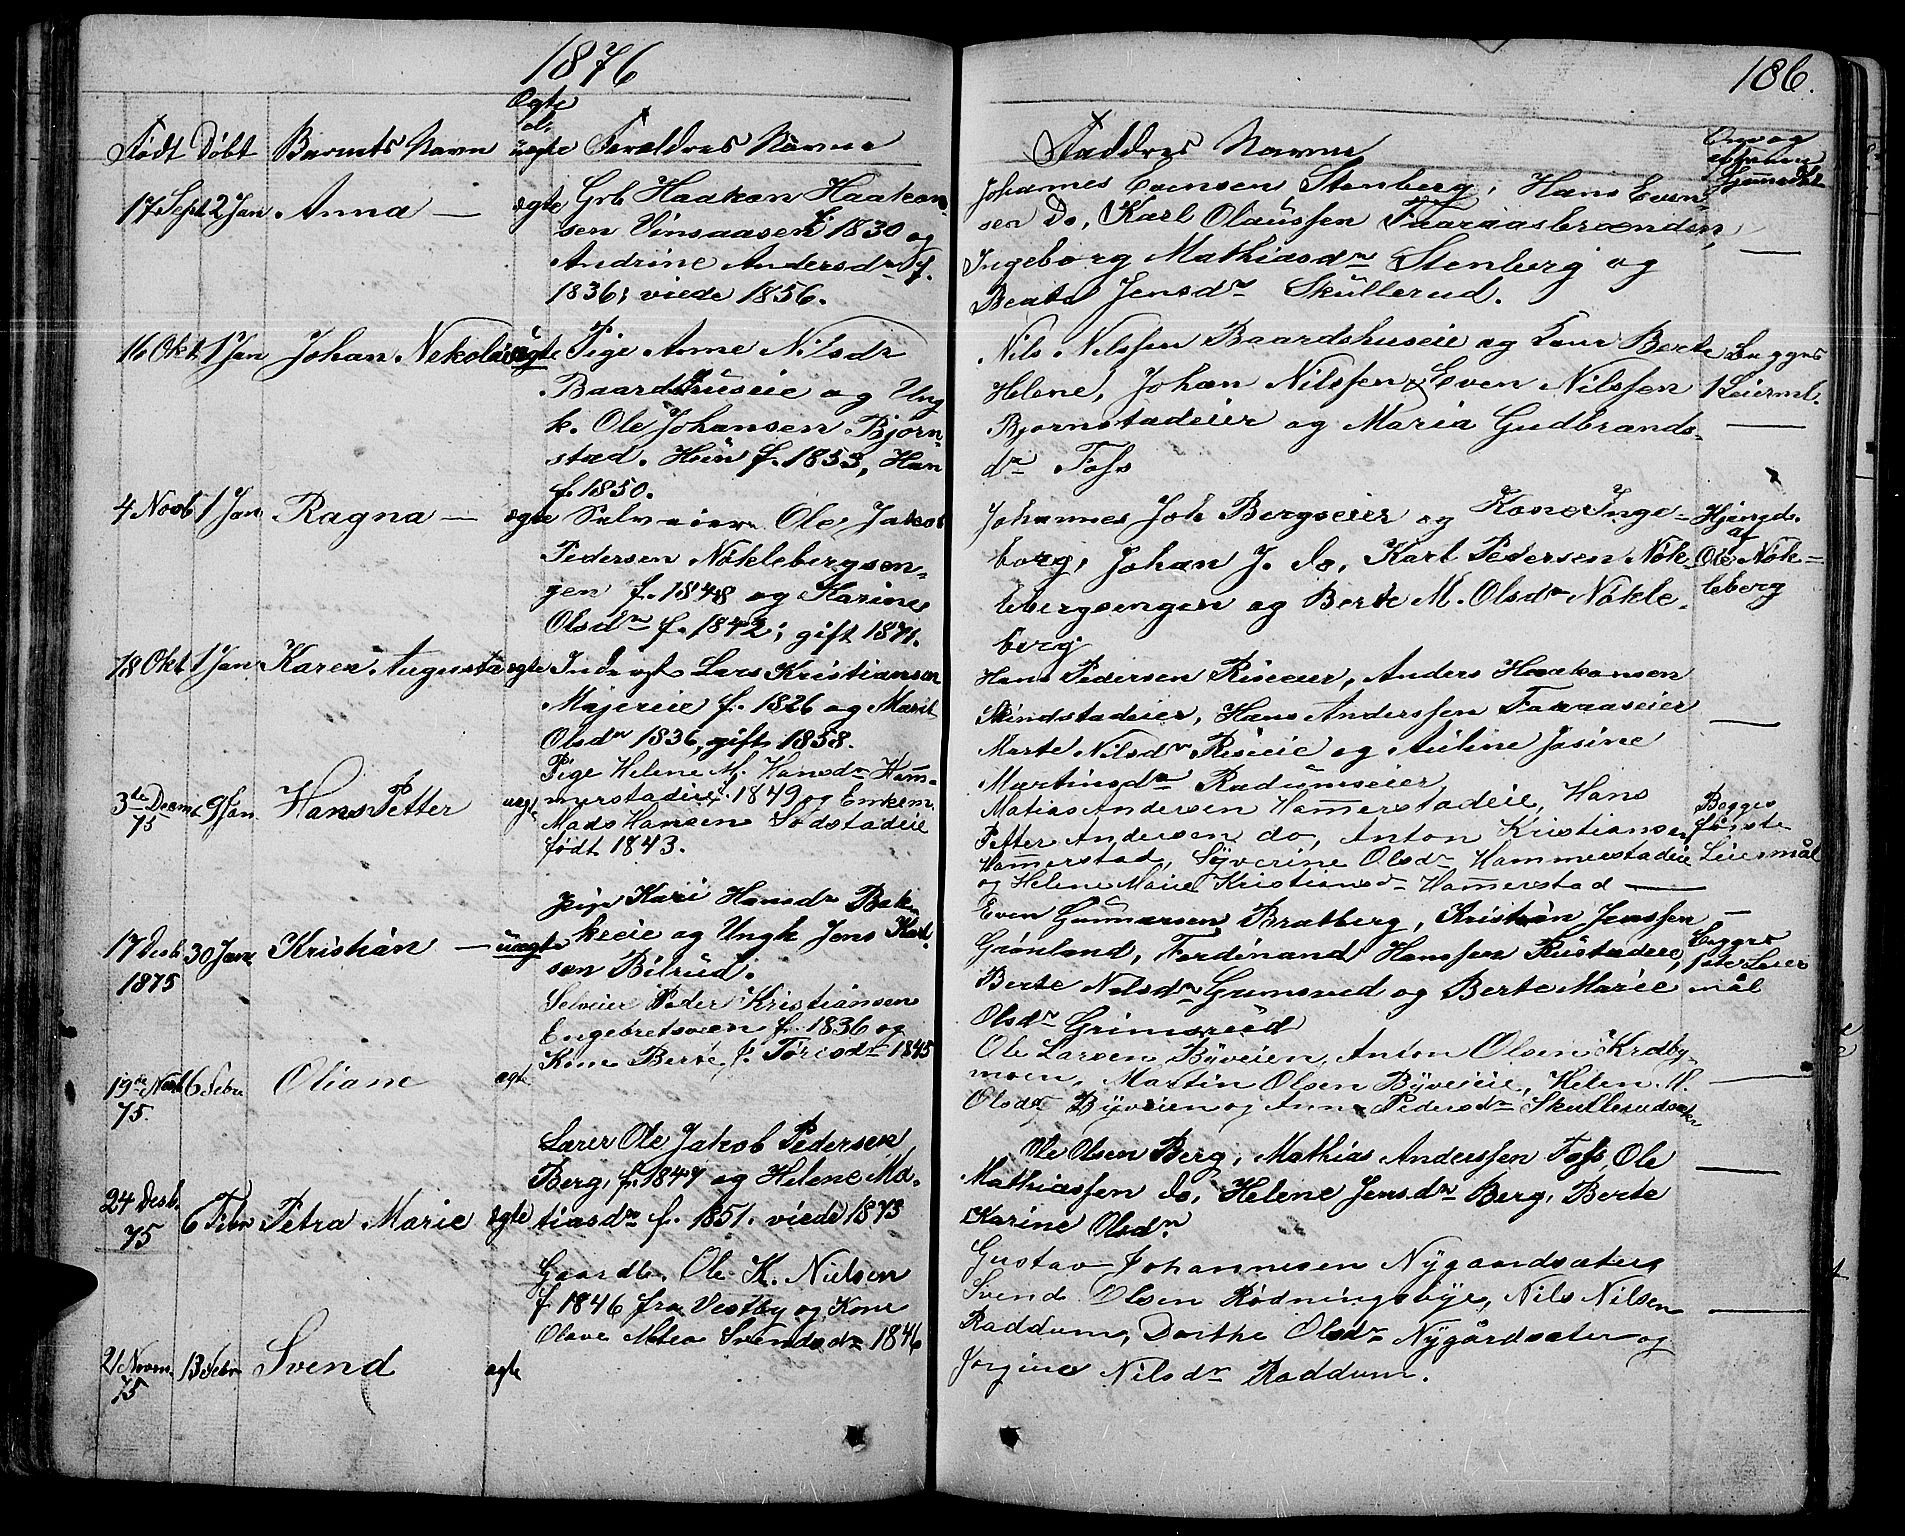 1876
186.
Født Døbt Barnets Navn Ægte el. uægte Foreldres Navne
Faddres Navne
Om og
Hjemdøbt
17 Sept 2 Jan Anna — ægte Grb Haakon Haakon-
sen Vinsaasen f. 1830 og
Andrine Andersdr f.
1836; viede 1856.
Johannes Evensen Stenberg, Hans Even-
sen Do, Karl Olaussen Faaraasbrænden,
Ingeborg Mathiasdr Stenberg og
Beate Jensdr Skullerud.
16 Okt 1 Jan Johan Nekolai uægte Pige Anne Nilsdr
Baardshuseie og Ung
k. Ole Johansen Bjørn-
stad. Hun f. 1853, Han
f. 1850.
Nils Nilssen Baardshuseie og Kone Berte
Helene, Johan Nilssen & Even Nilssen
Bjørnstadeier og Maria Gudbrands-
dr Foss
Begges
1 Leierml.
4 Novb 1 Jan Ragna — ægte Selveier Ole Jakob
Pedersen Nøklebergsen-
gen f. 1848 og Karine
Olsdr f. 1842; gift 1871.
Johannes Joh Bergseier og Kone Inge-
borg, Johan J. do, Karl Pedersen Nøk-
lebergsengen og Berte M. Olsdr Nøkle-
berg
Hjemd.
af
Ole Nøk-
leberg
18 Okt 1 Jan Karen Augusta ægte Inds. og Lars Kristiansen
Majereie f. 1826 og Marit
Olsdr 1836, gift 1858.
Hans Pedersen Riseeier, Anders Haakonsen
Skindstadeier, Hans Anderssen Faraaseier
Marte Nilsdr Riseie og Auline Josine
Martinsdr Radumseier
3die Decmb 75 9 Jan. Hans Petter uægt Pige Helene M. Hansdr Ham-
merstadeie f. 1849 og Enkem.
Mads Hansen Sodstadeie
født 1843.
Matias Andersen Hammerstadeie, Hans
Petter Andersen do, Anton Kristiansen
Hammerstad, Syverine Olsdr Hammerstadeie
og Helene Marie Kristiansdr Hammerstad —
Begges
første
Leiermål
17 Desb 1875 30 Jan Kristian — uægte Pige Kari Hansdr Bak-
keeie og Ungk Jens Karl-
sen Bilrud.
Even Gunnarsen Bratberg, Kristian Jenssen
Grønland, Ferdinand Hanssen Rustadeie,
Berte Nilsdr Grimsrud og Berte Marie
Olsdr Grimsrud
Begges
1ste Leier
mål
19de Novb 75. 6 Febr Oliane ægte Selveier Peder Kristiansen
Engebretsveen f. 1836 og
Kone Berte f. Toresdr 1845
Ole Larsen Byveien, Anton Olsen Krdby-
moen, Martin Olsen Byveieie, Helen M.
Olsdr Byveien og Anne Pedersdr Skullerud
24 Desb. 75 6 Febr Petra Marie ægte Lærer Ole Jakob Pedersen
Berg, f. 1847 og Helene Ma-
tiasdr f. 1851. viede 1873
Ole Olsen Berg, Mathias Anderssen Foss, Ole
Mathiassen do, Helene Jensdr Berg, Berte
Karine Olsdr.
21 Novem. 75 13 Febr Svend ægte Gaardbr. Ole K. Nielsen
f. 1846 fra Vestby og Kone
Olave Mtea Svendsdr 1846
Gustav Johannesen Nygaardsæter,
Svend Olsen Rødningsbye, Nils Nilsen
Raddum, Dorthe Olsdr Nygårdsæter og
Jørgine Nilsdr Raddum.